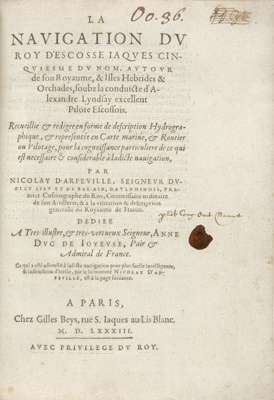 Oo. 36.
LA
NAVIGATION DV
ROY D'ESCOSSE IAQVES CIN-
QVIESME DV NOM, AVTOVR
de son Royaume, & Isles Hebrides &
Orchades, soubz la conduicte d'A-
lexandre Lyndsay excellent
Pilote Escossois.
Recueillie & redigee en forme de description Hydrogra-
phique, & representee en Carte marine, & Routier
ou Pilotage, pour la cognoissance particuliere de ce qui
est necessaire & considerable à ladicte nauigation,
PAR
NICOLAY D'ARFEVILLE, SEIGNEVR DV-
DICT LIEV & DE BEL-AIR, DAVLPHINOIS, PRE-
mier Cosmographe du Roy, Commissaire ordinaire
de son Artillerie, & à la visitation & description
generale du Royaume de France.
DEDIEE
A Tres-illustre, & tres-vertueux Seigneur, ANNE
DVC DE IOYEVSE, Pair &
Admiral de France.
Ce qui a esté adiousté à ladicte nauigation pour plus facile intelligence,
& instruction d'icelle, par NICOLAY D'AR-
FEVILLE, est à la page suiuante.
A PARIS,
Chez Gilles Beys, rue S. Iaques au Lis Blanc.
M. D. LXXXIII.
AVEC PRIVILEGE DV ROY.